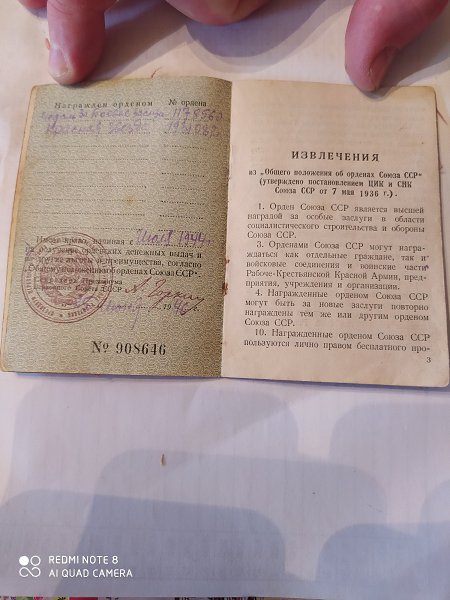 Награжден орденом № ордена
за боевые заслуги 1178560
Красная Звезда
Имеет право, начиная с Июля 1944 г.
денежных выдач и
преимущества, согласно
орденах Союза ССР".
Президиума
Союза ССР А. Горкин
1946 г.
№ 908646
ИЗВЛЕЧЕНИЯ
из „Общего положения об орденах Союза ССР"
(утверждено постановлением ЦИК и СНК
Союза ССР от 7 мая 1936 г.).
1. Орден Союза ССР является высшей
наградой за особые заслуги в области
социалистического строительства и обороны
Союза ССР.
3. Орденами Союза ССР могут награ-
ждаться как отдельные граждане, так и
войсковые соединения и воинские части
Рабоче-Крестьянской Красной Армии, пред-
приятия, учреждения и организации.
4. Награжденные орденом Союза ССР
могут быть за новые заслуги повторно
награждены тем же или другим орденом
Союза ССР.
10. Награжденные орденом Союза ССР
пользуются лично правом бесплатного про-
3
REDMI NOTE 8
AI QUAD CAMERA